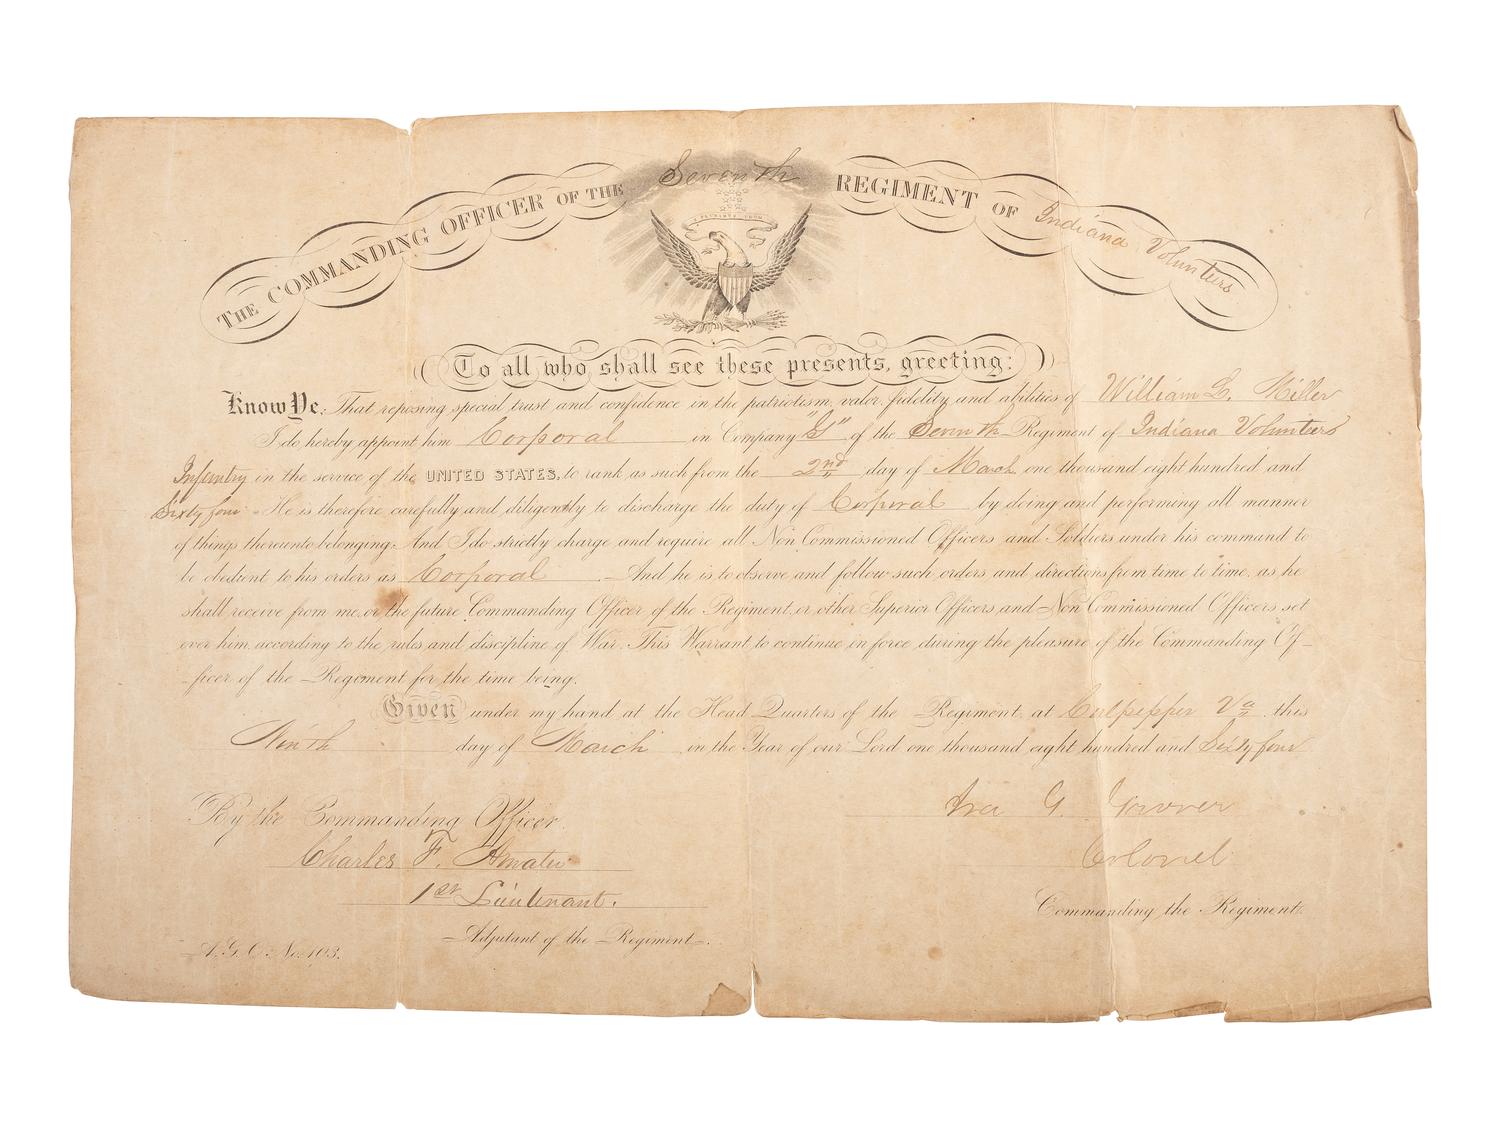 THE COMMANDING OFFICER OF THE Seventh REGIMENT OF Indiana Volunteers
E PLURIBUS UNUM
To all who shall see these presents, greeting:
Know Ye, That reposing special trust and confidence in the patriotism, valor, fidelity and abilities of William L. Miller
I do hereby appoint him Corporal in Company "G" of the Seventh Regiment of Indiana Volunteers
Infantry in the service of the UNITED STATES, to rank as such from the 2nd day of March one thousand eight hundred and
Sixty four He is therefore carefully and diligently to discharge the duty of Corporal by doing and performing all manner
of things thereunto belonging. And I do strictly charge and require all Non Commissioned Officers and Soldiers under his command to
be obedient to his orders as Corporal. And he is to observe and follow such orders and directions from time to time, as he
shall receive from me, or the future Commanding Officer of the Regiment, or other Superior Officers and Non Commissioned Officers set
over him, according to the rules and discipline of War. This Warrant to continue in force during the pleasure of the Commanding Of-
ficer of the Regiment for the time being.
Given under my hand at the Head Quarters of the Regiment, at Culpepper Va this
Ninth day of March in the Year of our Lord one thousand eight hundred and Sixty four
By the Commanding Officer.
Ira G. Grover
Charles F.
Colonel
1st Lieutenant.
Commanding the Regiment.
Adjutant of the Regiment.
A.G.O. No. 103.